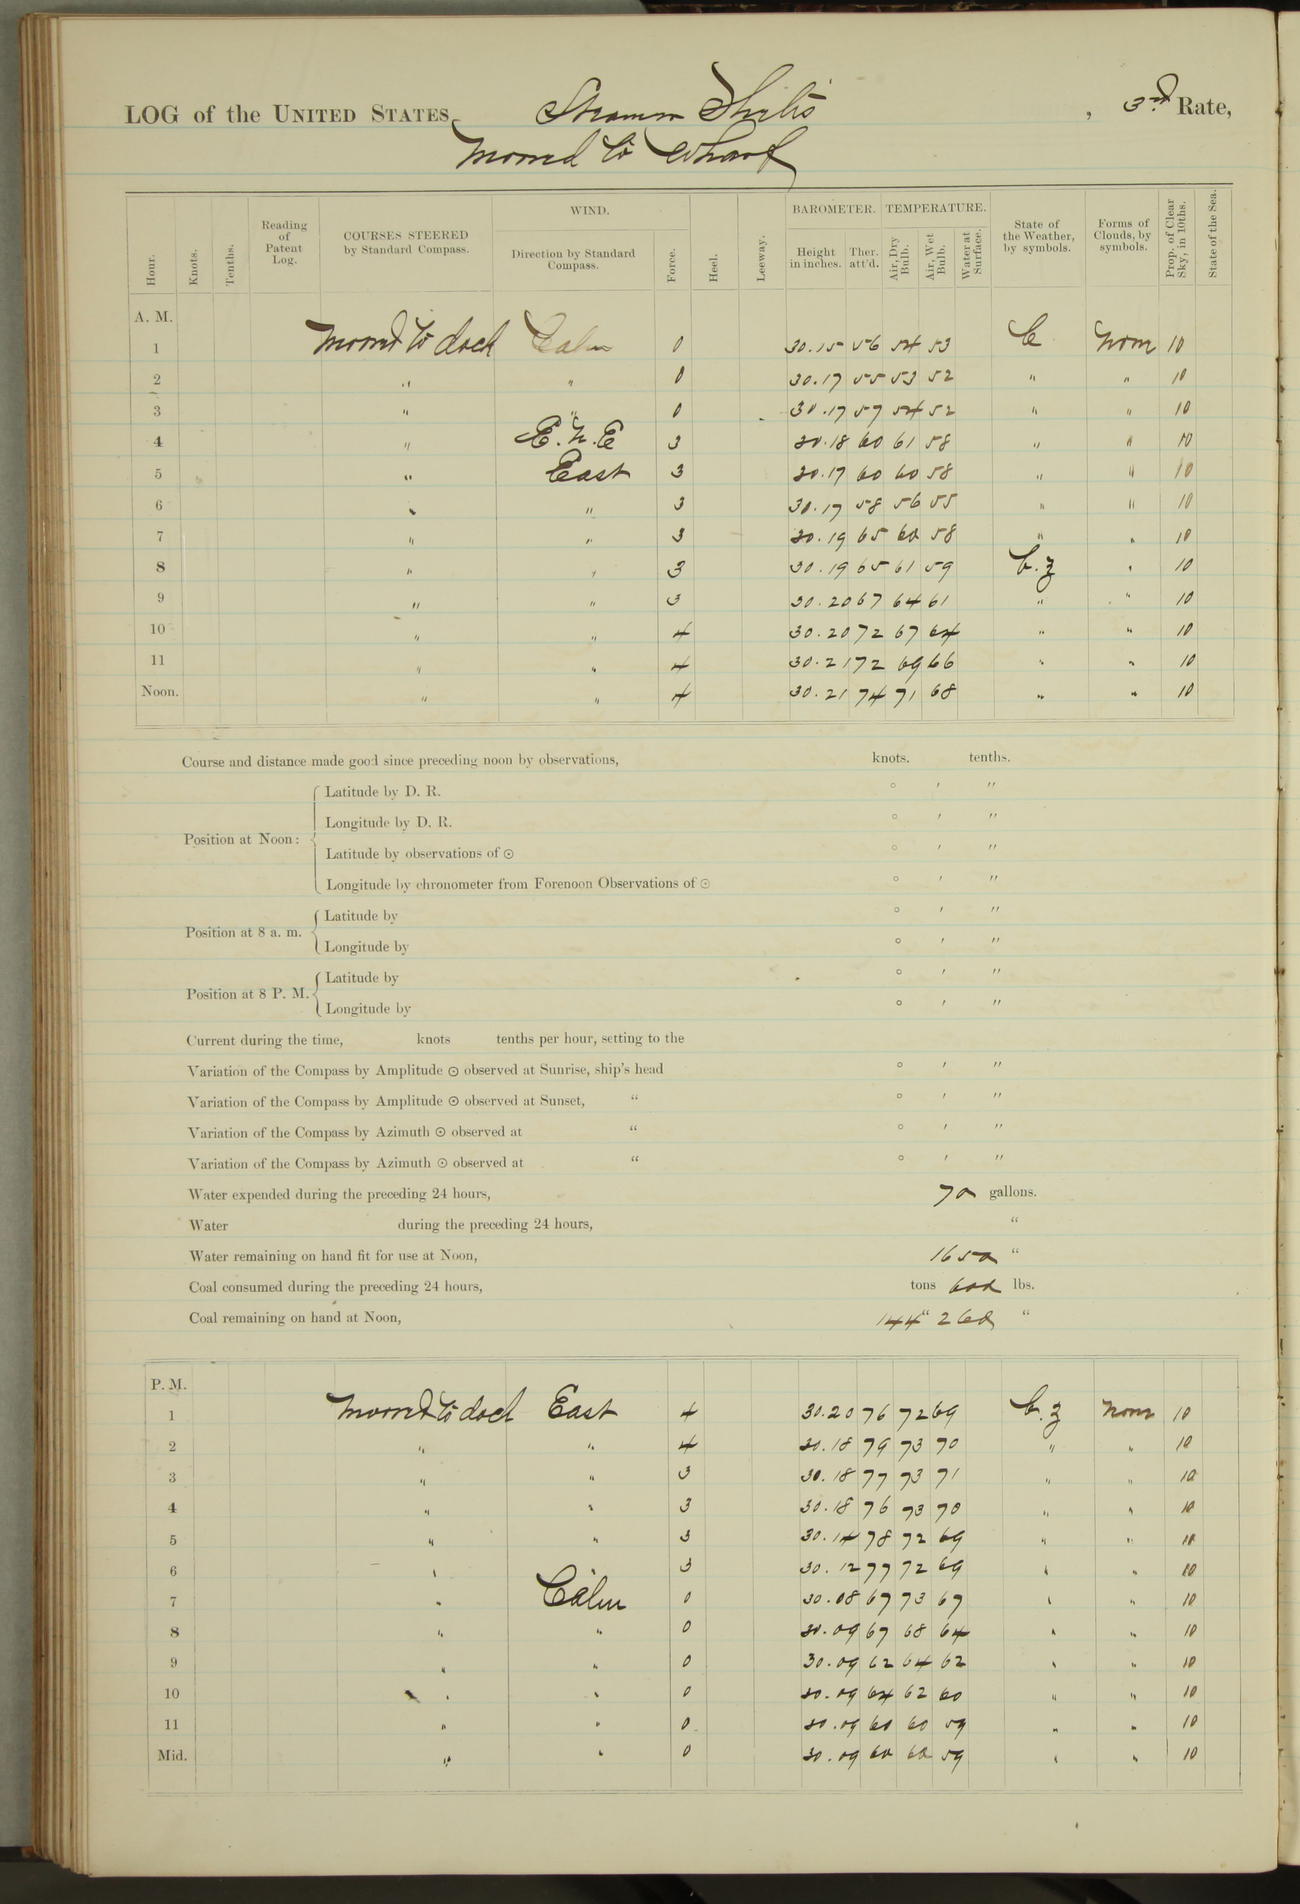 LOG of the UNITED STATES Steamer Thetis, 3rd Rate,
Moored to Wharf
Hour. Knots. Tenths. Reading of Patent Log. COURSES STEERED by Standard Compass. WIND. Direction by Standard Compass. Force. Heel. Leeway. BAROMETER. Height in inches. Ther. att'd. TEMPERATURE. Air, Dry Bulb. Air, Wet Bulb. Water at Surface. State of the Weather, by symbols. Forms of Clouds, by symbols. Prop. of Clear Sky, in 10ths. State of the Sea.
A. M.
1 Moored to dock Calm 0 30.15 56 54 53 C None 10
2 " " 0 30.17 55 53 52 " " 10
3 " " 0 30.17 57 54 52 " " 10
4 " E.N.E 3 30.18 60 61 58 " " 10
5 " East 3 30.17 60 60 58 " " 10
6 " " 3 30.17 58 56 55 " " 10
7 " " 3 30.19 65 60 58 " " 10
8 " " 3 30.19 65 61 59 b.z " 10
9 " " 3 30.20 67 64 61 " " 10
10 " " 4 30.20 72 67 64 " " 10
11 " " 4 30.21 72 69 66 " " 10
Noon. " " 4 30.21 74 71 68 " " 10
Course and distance made good since preceding noon by observations, knots. tenths.
Latitude by D. R. ° ′ ″
Longitude by D. R. ° ′ ″
Position at Noon:
Latitude by observations of ☉ ° ′ ″
Longitude by chronometer from Forenoon Observations of ☉ ° ′ ″
Latitude by ° ′ ″
Position at 8 a. m.
Longitude by ° ′ ″
Latitude by ° ′ ″
Position at 8 P. M.
Longitude by ° ′ ″
Current during the time, knots tenths per hour, setting to the
Variation of the Compass by Amplitude ☉ observed at Sunrise, ship's head ° ′ ″
Variation of the Compass by Amplitude ☉ observed at Sunset, " ° ′ ″
Variation of the Compass by Azimuth ☉ observed at " ° ′ ″
Variation of the Compass by Azimuth ☉ observed at " ° ′ ″
Water expended during the preceding 24 hours, 70 gallons.
Water during the preceding 24 hours, "
Water remaining on hand fit for use at Noon, 1650 "
Coal consumed during the preceding 24 hours, tons 600 lbs.
Coal remaining on hand at Noon, 144 " 260 "
P. M.
1 Moored to dock East 4 30.20 76 72 69 b.z None 10
2 " " 4 30.18 79 73 70 " " 10
3 " " 3 30.18 77 73 71 " " 10
4 " " 3 30.18 76 73 70 " " 10
5 " " 3 30.14 78 72 69 " " 10
6 " " 3 30.12 77 72 69 " " 10
7 " Calm 0 30.08 67 73 67 " " 10
8 " " 0 30.09 67 68 64 " " 10
9 " " 0 30.09 62 64 62 " " 10
10 " " 0 30.09 64 62 60 " " 10
11 " " 0 30.09 60 60 59 " " 10
Mid. " " 0 30.09 60 60 59 " " 10